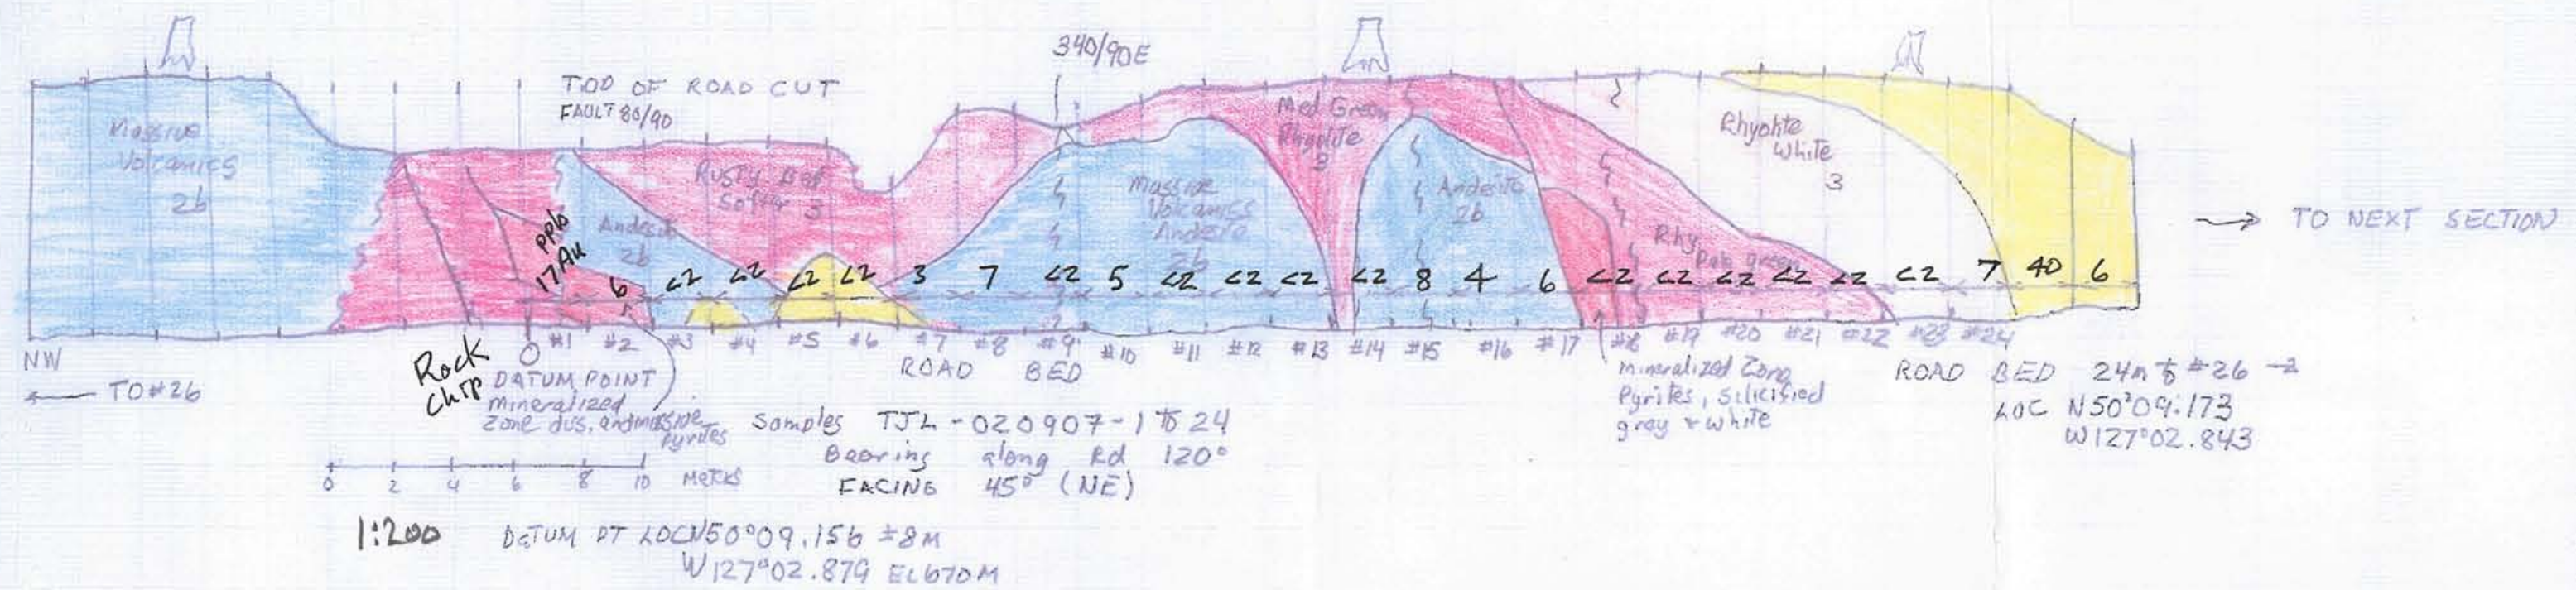 340/90E
TOP OF ROAD CUT
FAULT 80/90
Massive
Volcanics
2b
Rusty
Softer 3
Andesite
2b
Massive
Volcanics
Andesite
2b
Med Green
Rhyolite
3
Andesite
2b
Rhyolite
White
3
Rhy
Pale green
→ TO NEXT SECTION
ppb
17 Au 6 <2 <2 <2 <2 3 7 <2 5 <2 <2 <2 <2 8 4 6 <2 <2 <2 <2 <2 <2 7 40 6
0 #1 #2 #3 #4 #5 #6 #7 #8 #9 #10 #11 #12 #13 #14 #15 #16 #17 #18 #19 #20 #21 #22 #23 #24
NW
← TO #26
Rock
Chip
DATUM POINT
mineralized
zone dis. and massive
pyrites
ROAD BED
Mineralized Zone
Pyrites, Silicified
gray & white
ROAD BED 24m to #26
LOC N50°09.173
W127°02.843
Samples TJL-020907-1 to 24
Bearing along Rd 120°
FACING 45° (NE)
0 2 4 6 8 10 Meters
1:200
DATUM PT LOC N50°09.156 ±8M
W127°02.879 EL 670M